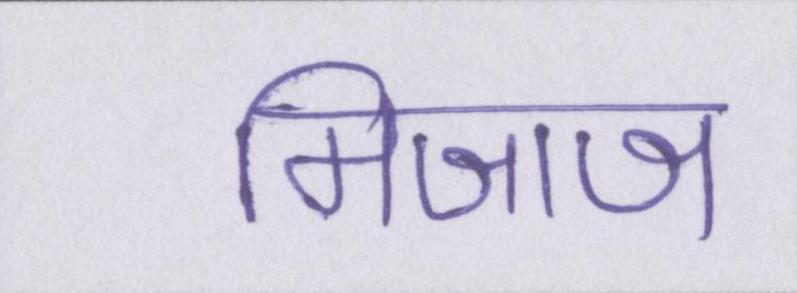 मिजाज